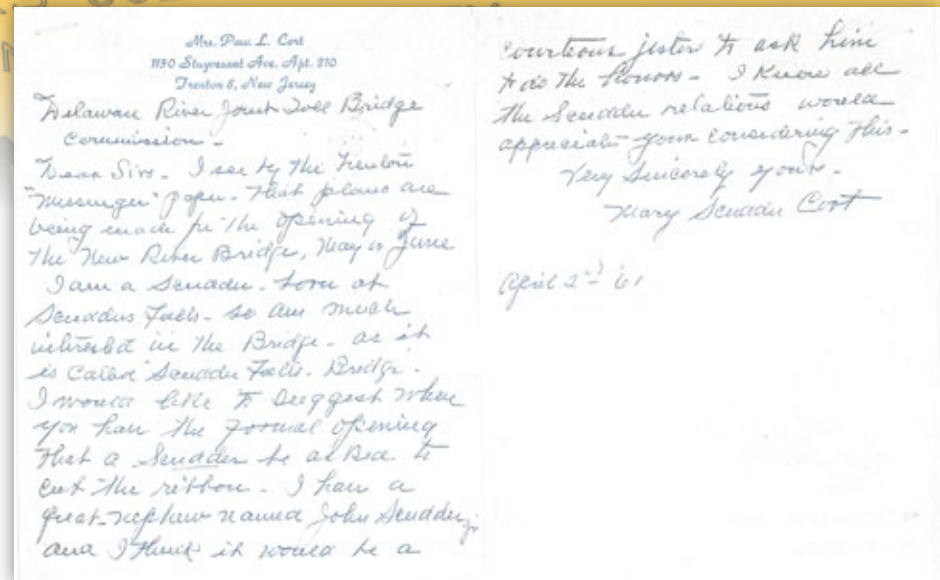 Mrs. Paul L. Cort
1130 Stuyvesant Ave. Apt. 210
Trenton 8, New Jersey
Delaware River Joint Toll Bridge
Commission -
Dear Sirs - I see by the Trenton
"Messenger" paper - that plans are
being made for the opening of
the New River Bridge, May or June
I am a Scudder - born at
Scudders Falls - so am much
interested in the Bridge - as it
is called Scudder Falls - Bridge.
I would like to suggest when
you have the formal opening
that a Scudder be asked to
cut the ribbon - I have a
great-nephew named John Scudder, jr
and I think it would be a
courteous jester to ask him
to do the honors - I know all
the Scudder relations would
appreciate your considering this -
Very Sincerely yours -
Mary Scudder Cort
April 2nd '61